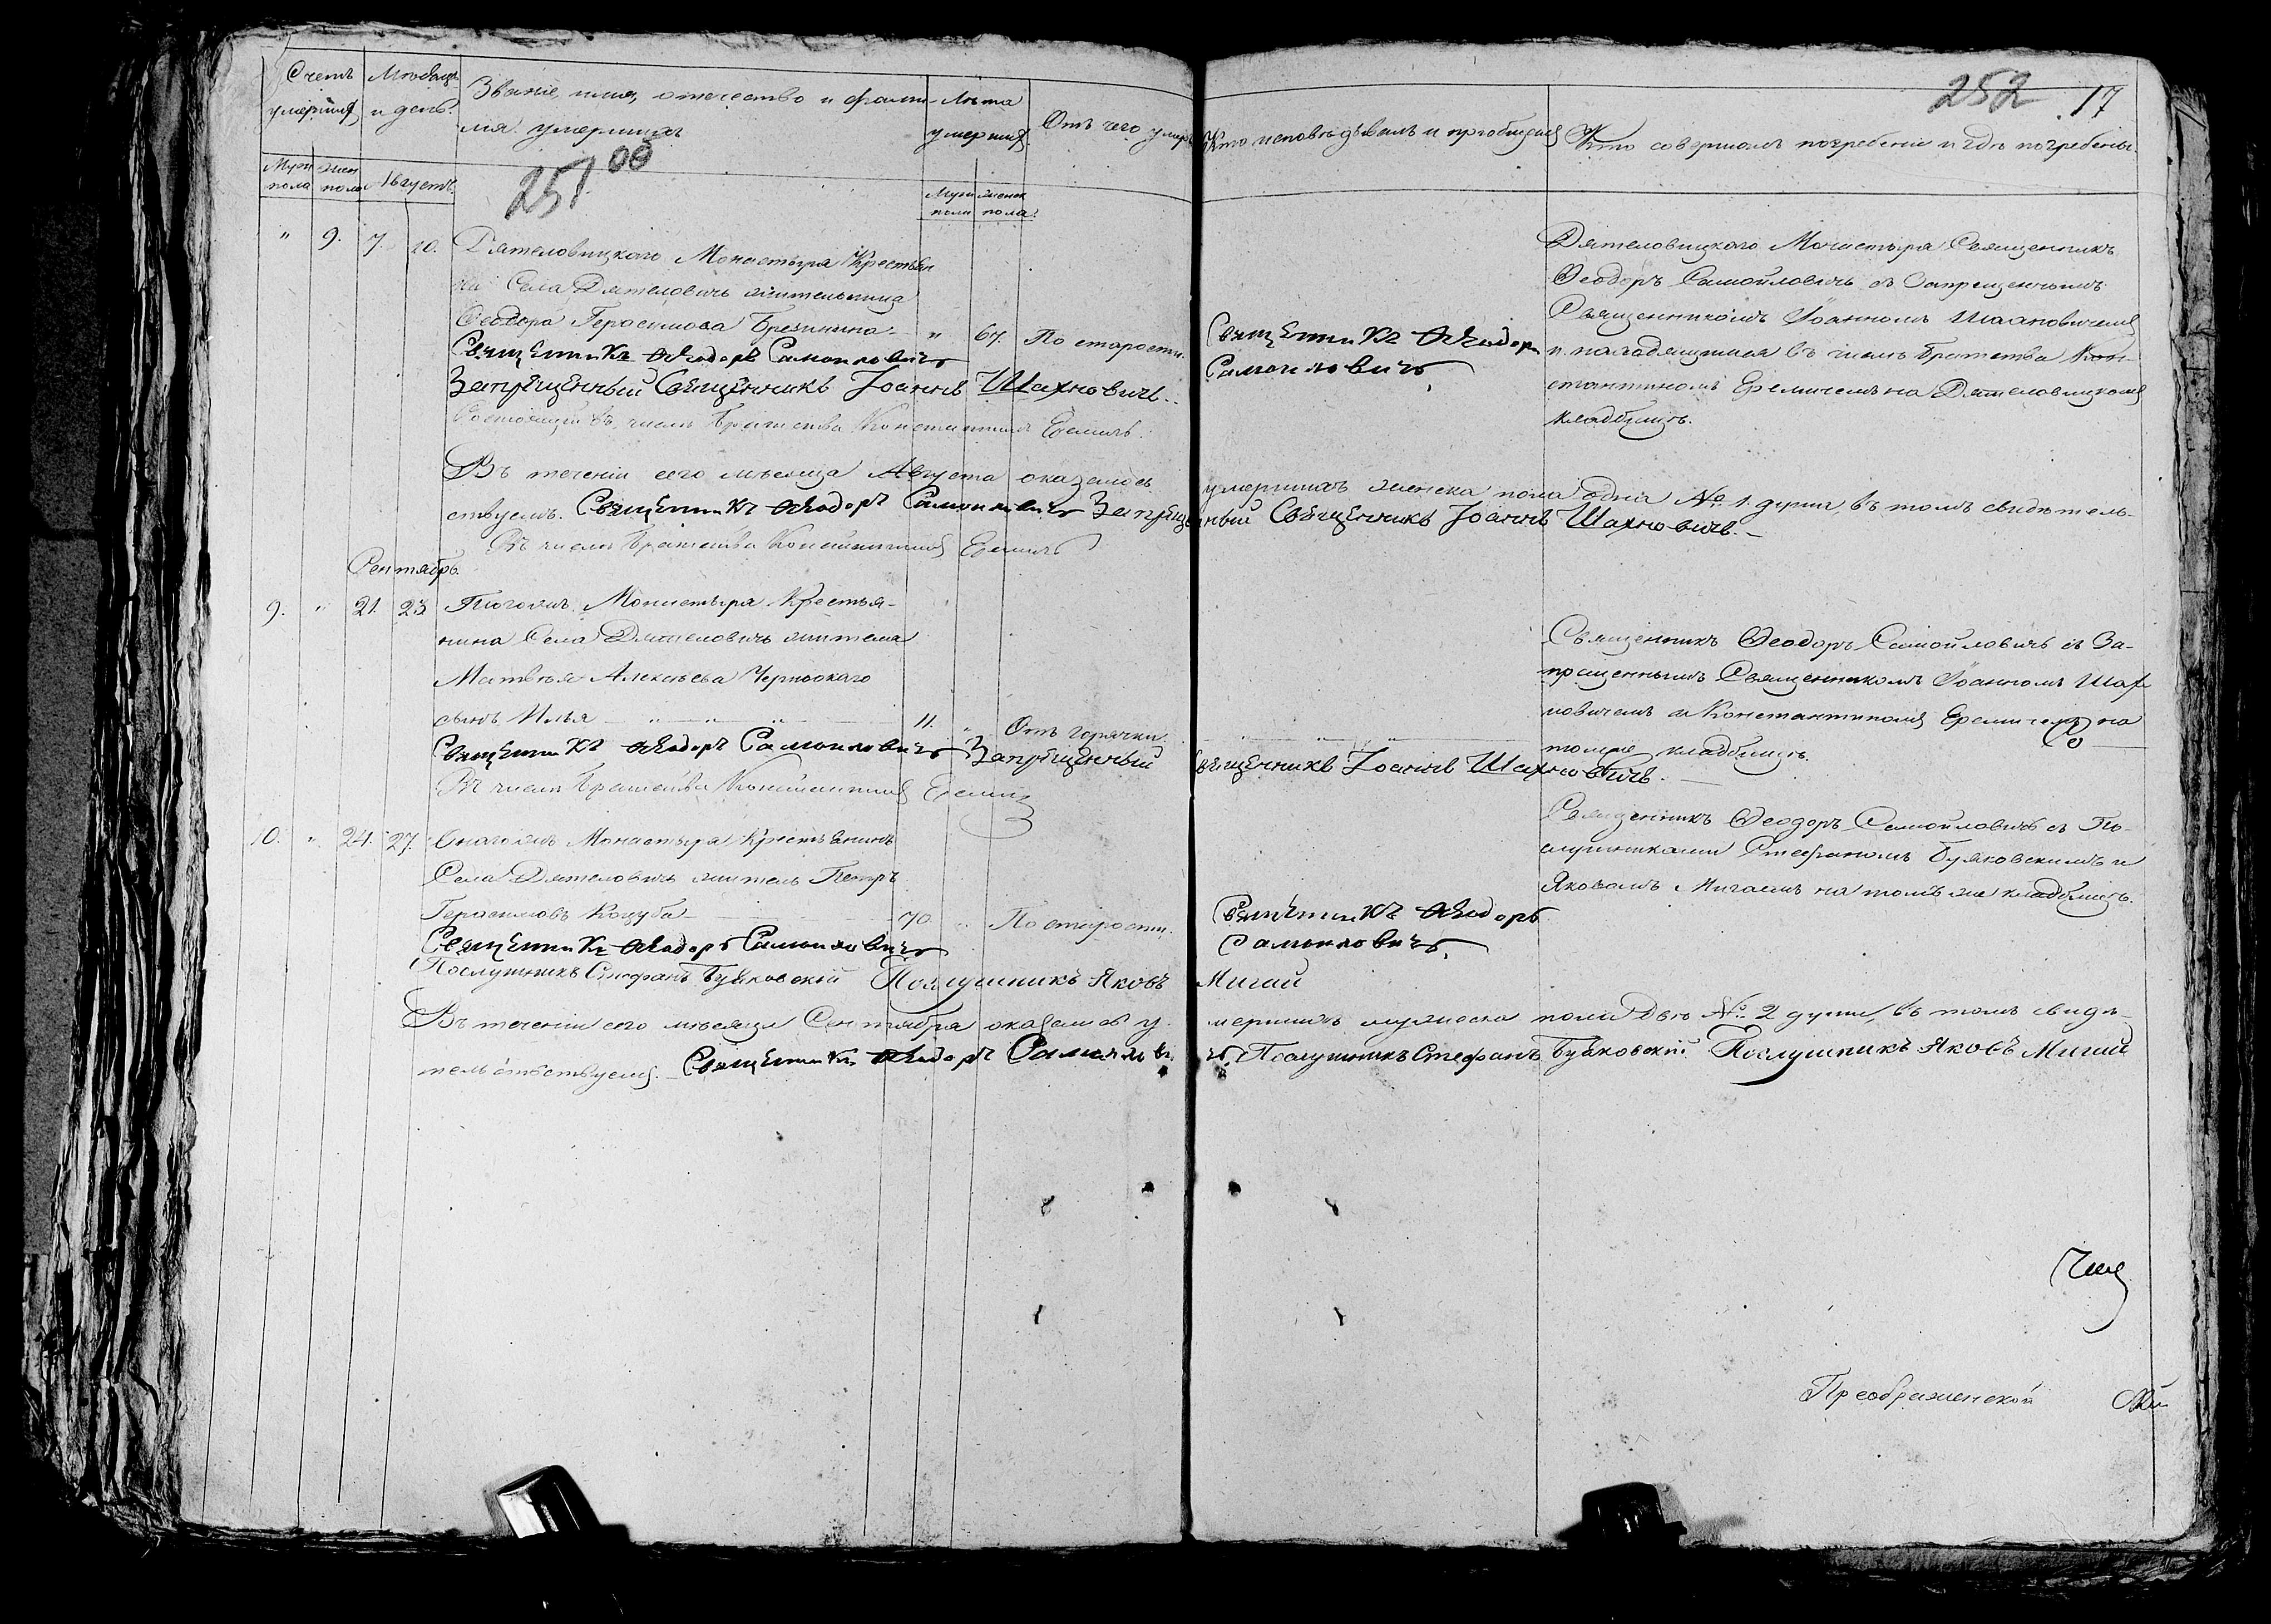 Счетъ умершихъ
Мѣсяцъ и день.
Званіе, имя, отечество и фами-
лія умершихъ
Лѣта умершихъ
Отъ чего умеръ
Кто исповѣдывалъ и пріобщалъ
Кто совершалъ погребеніе и гдѣ погребены.
252 17
Муж пола
жен пола
Августъ
251 об
Муж пола
женск пола.
" 9. 7. 10. Дятеловицкаго Монастыря Крестьян
ка Села Дятеловичъ жительница
Ѳеодора Герасимова
" 67. По старости.
Священникъ Ѳеодоръ Самойловичъ
Запрещенный Священникъ Іоаннъ Шахновичъ.
Состоящій въ числѣ Братства Константинъ Еремичъ.
Священникъ Ѳеодоръ
Самойловичъ
Дятеловицкаго Монастыря Священникъ
Ѳеодоръ Самойловичъ съ Запрещеннымъ
Священникомъ Іоанномъ Шахновичемъ
и находящимся въ числѣ Братства Кон-
стантиномъ Еремичемъ на Дятеловицкомъ
кладбищѣ.
Въ теченіи сего мѣсяца Августа оказалось умершихъ женска пола одна № 1. душа, въ томъ свидѣтель-
ствуемъ. Священникъ Ѳеодоръ Самойловичъ Запрещенный Священникъ Іоаннъ Шахновичъ.
Въ числѣ Братства Константинъ Еремичъ
Сентябрь.
9. " 21. 23 Тогожъ Монастыря Крестья-
нина Села Дятеловичъ жителя
Матвѣя Алексѣева
сынъ Илья 11. " Отъ горячки
Священникъ Ѳеодоръ Самойловичъ Запрещенный Священникъ Іоаннъ Шахновичъ.
Въ числѣ Братства Константинъ Еремичъ
Священникъ Ѳеодоръ Самойловичъ съ За-
прещеннымъ Священникомъ Іоанномъ Шах
новичемъ и Константиномъ Еремичемъ на
томже кладбищѣ.
10. " 24. 27. Онагожъ Монастыря Крестьянинъ
Села Дятеловичъ житель Петръ
Герасимовъ Коцуба 70 " По старости.
Священникъ Ѳеодоръ Самойловичъ
Послушникъ Стефанъ Буяковскій Послушникъ Яковъ Мигай
Священникъ Ѳеодоръ
Самойловичъ
Священникъ Ѳеодоръ Самойловичъ съ По-
слушниками Стефаномъ Буяковскимъ и
Яковомъ Мигаемъ на томъ же кладбищѣ.
Въ теченіи сего мѣсяца Сентября оказалось у- мершихъ мужеска пола двѣ № 2 души, въ томъ свидѣ-
тельствуемъ. Священникъ Ѳеодоръ Самойловичъ Послушникъ Стефанъ Буяковскій Послушникъ Яковъ Мигай
Преображенской